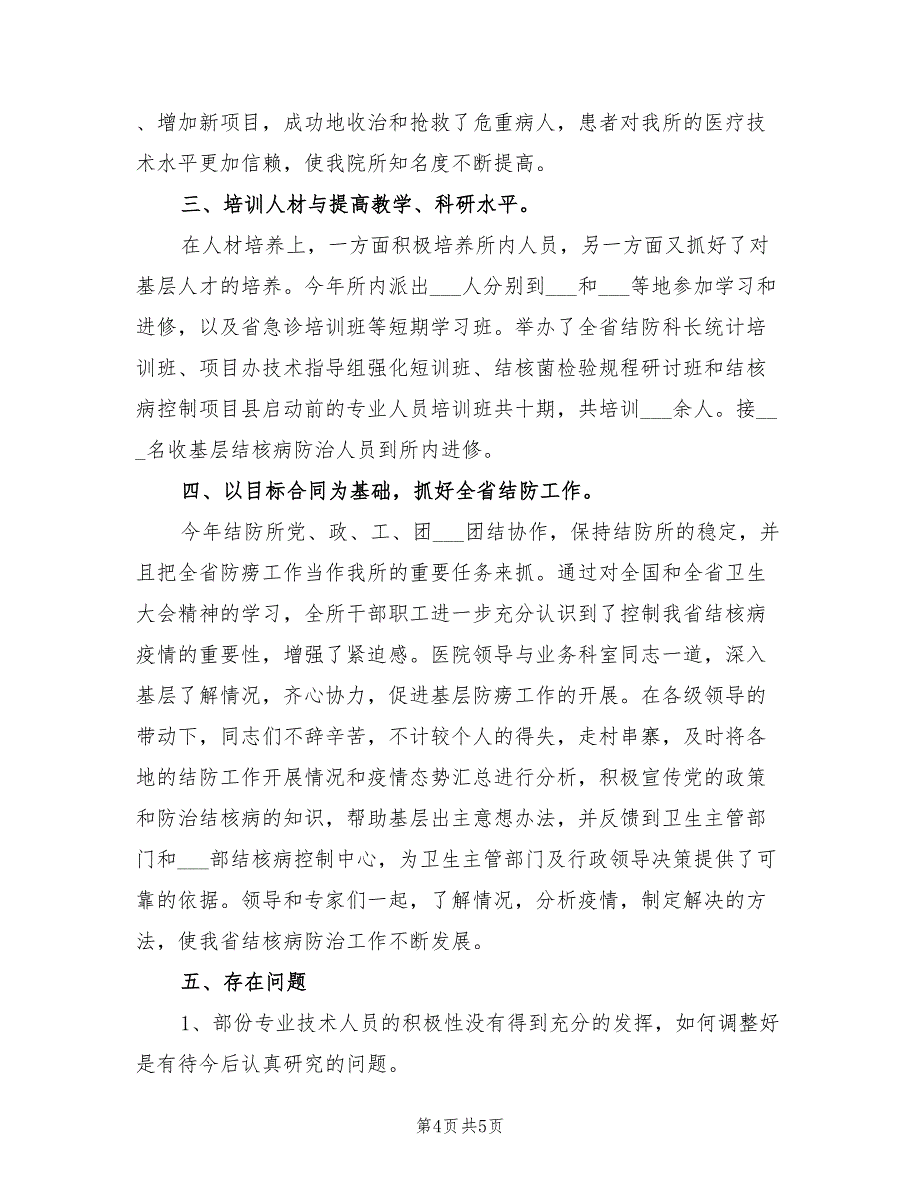 、增加新项目，成功地收治和抢救了危重病人，患者对我所的医疗技
术水平更加信赖，使我院所知名度不断提高。
三、培训人材与提高教学、科研水平。
在人材培养上，一方面积极培养所内人员，另一方面又抓好了对
基层人才的培养。今年所内派出___人分别到___和___等地参加学习和
进修，以及省急诊培训班等短期学习班。举办了全省结防科长统计培
训班、项目办技术指导组强化短训班、结核菌检验规程研讨班和结核
病控制项目县启动前的专业人员培训班共十期，共培训___余人。接__
_名收基层结核病防治人员到所内进修。
四、以目标合同为基础，抓好全省结防工作。
今年结防所党、政、工、团___团结协作，保持结防所的稳定，并
且把全省防痨工作当作我所的重要任务来抓。通过对全国和全省卫生
大会精神的学习，全所干部职工进一步充分认识到了控制我省结核病
疫情的重要性，增强了紧迫感。医院领导与业务科室同志一道，深入
基层了解情况，齐心协力，促进基层防痨工作的开展。在各级领导的
带动下，同志们不辞辛苦，不计较个人的得失，走村串寨，及时将各
地的结防工作开展情况和疫情态势汇总进行分析，积极宣传党的政策
和防治结核病的知识，帮助基层出主意想办法，并反馈到卫生主管部
门和___部结核病控制中心，为卫生主管部门及行政领导决策提供了可
靠的依据。领导和专家们一起，了解情况，分析疫情，制定解决的方
法，使我省结核病防治工作不断发展。
五、存在问题
1、部份专业技术人员的积极性没有得到充分的发挥，如何调整好
是有待今后认真研究的问题。
第4页共5页